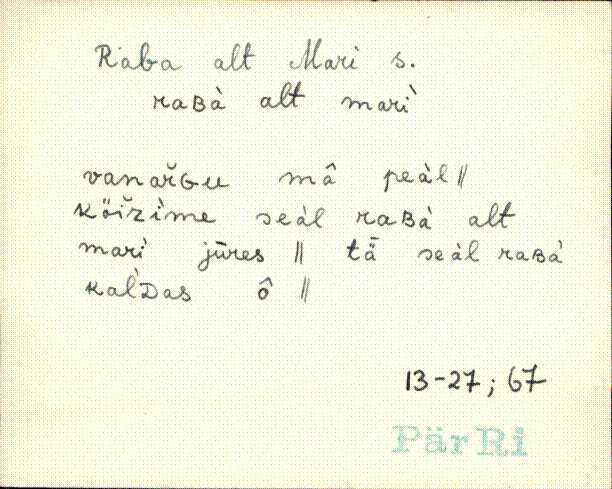 Raba alt Mari s.
raʙà alt marì
vanařɢu mâ peàl ||
köiřzìme seàl raʙà alt
marì jūres || tǟ seàl raʙà
kal'ᴅas ô ||
13-27; 67
PärRi